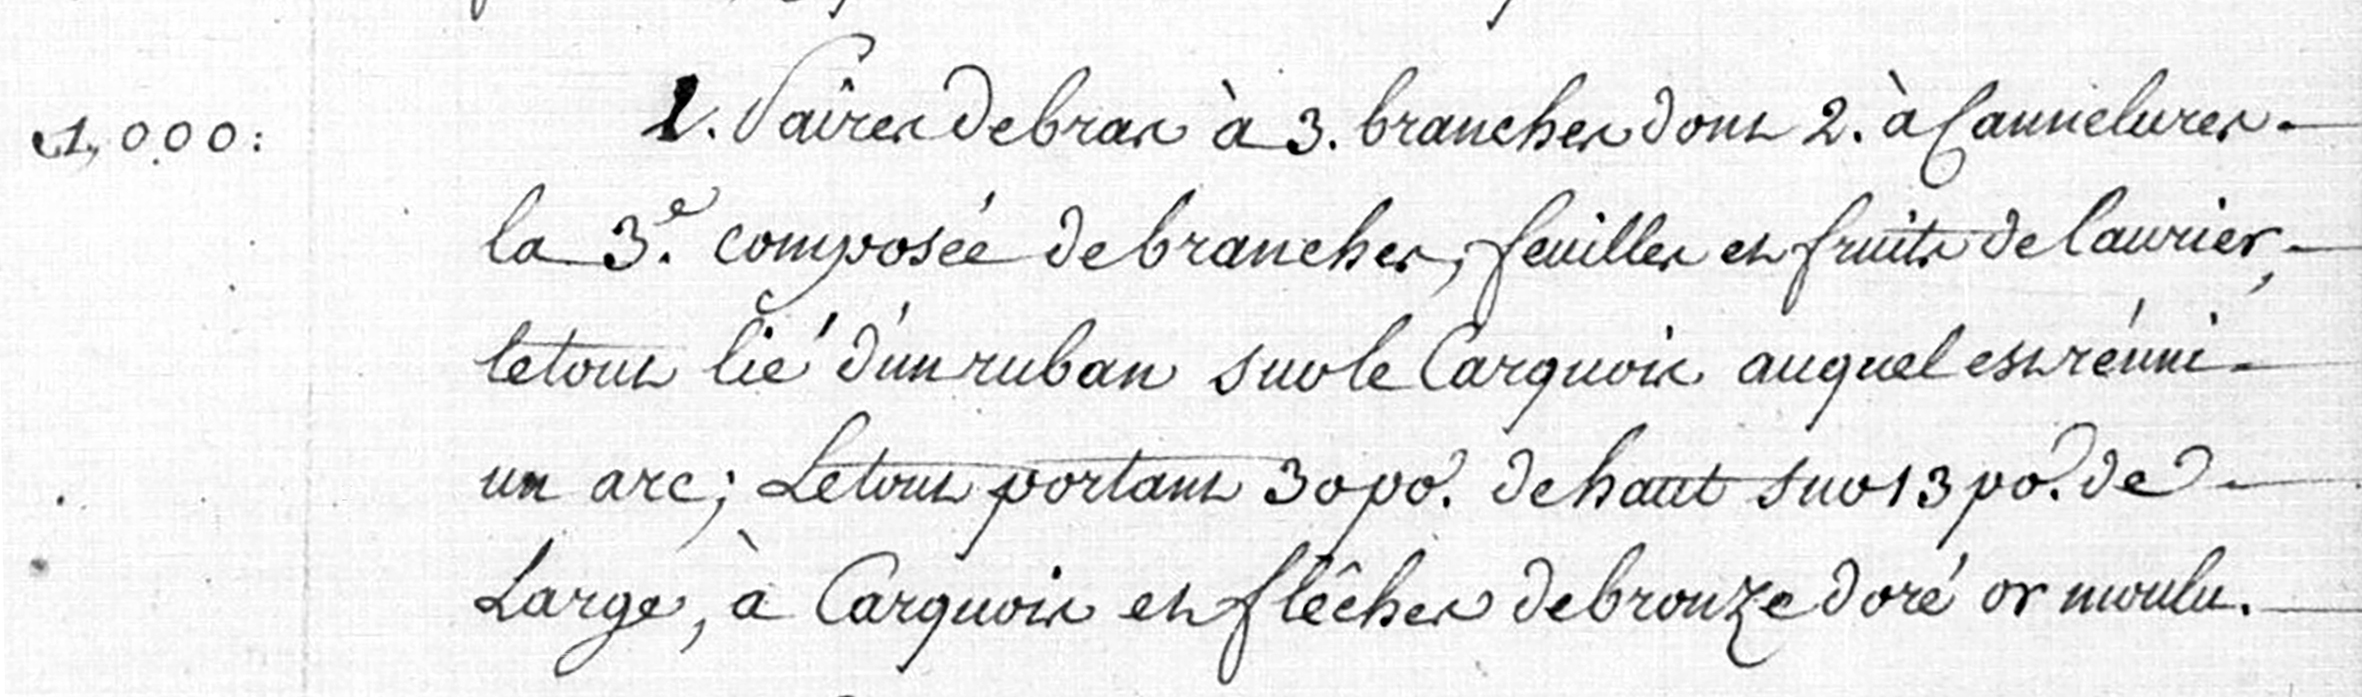 1,000: 1. Paires de bras à 3. branches dont 2. à Cannelures
la 3.e composée de branches, feuilles et fruits de laurier,
le tout lié d'un ruban sur le Carquois auquel est réuni
un arc; Le tout portant 30 po. de haut sur 13 po. de
Large, à Carquois et flêches de bronze doré or moulu.